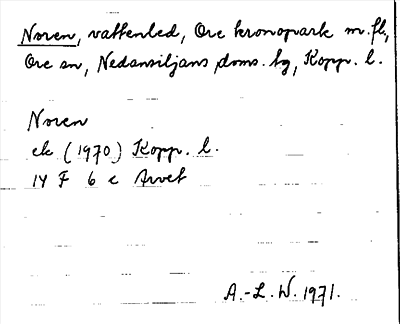 Noren, vattenled, Ore kronopark m.fl,
Ore sn, Nedansiljans doms. hg, Kopp. l.
Noren
ek (1970) Kopp. l.
14 F 6 c Arvet
A.-L. W. 1971.